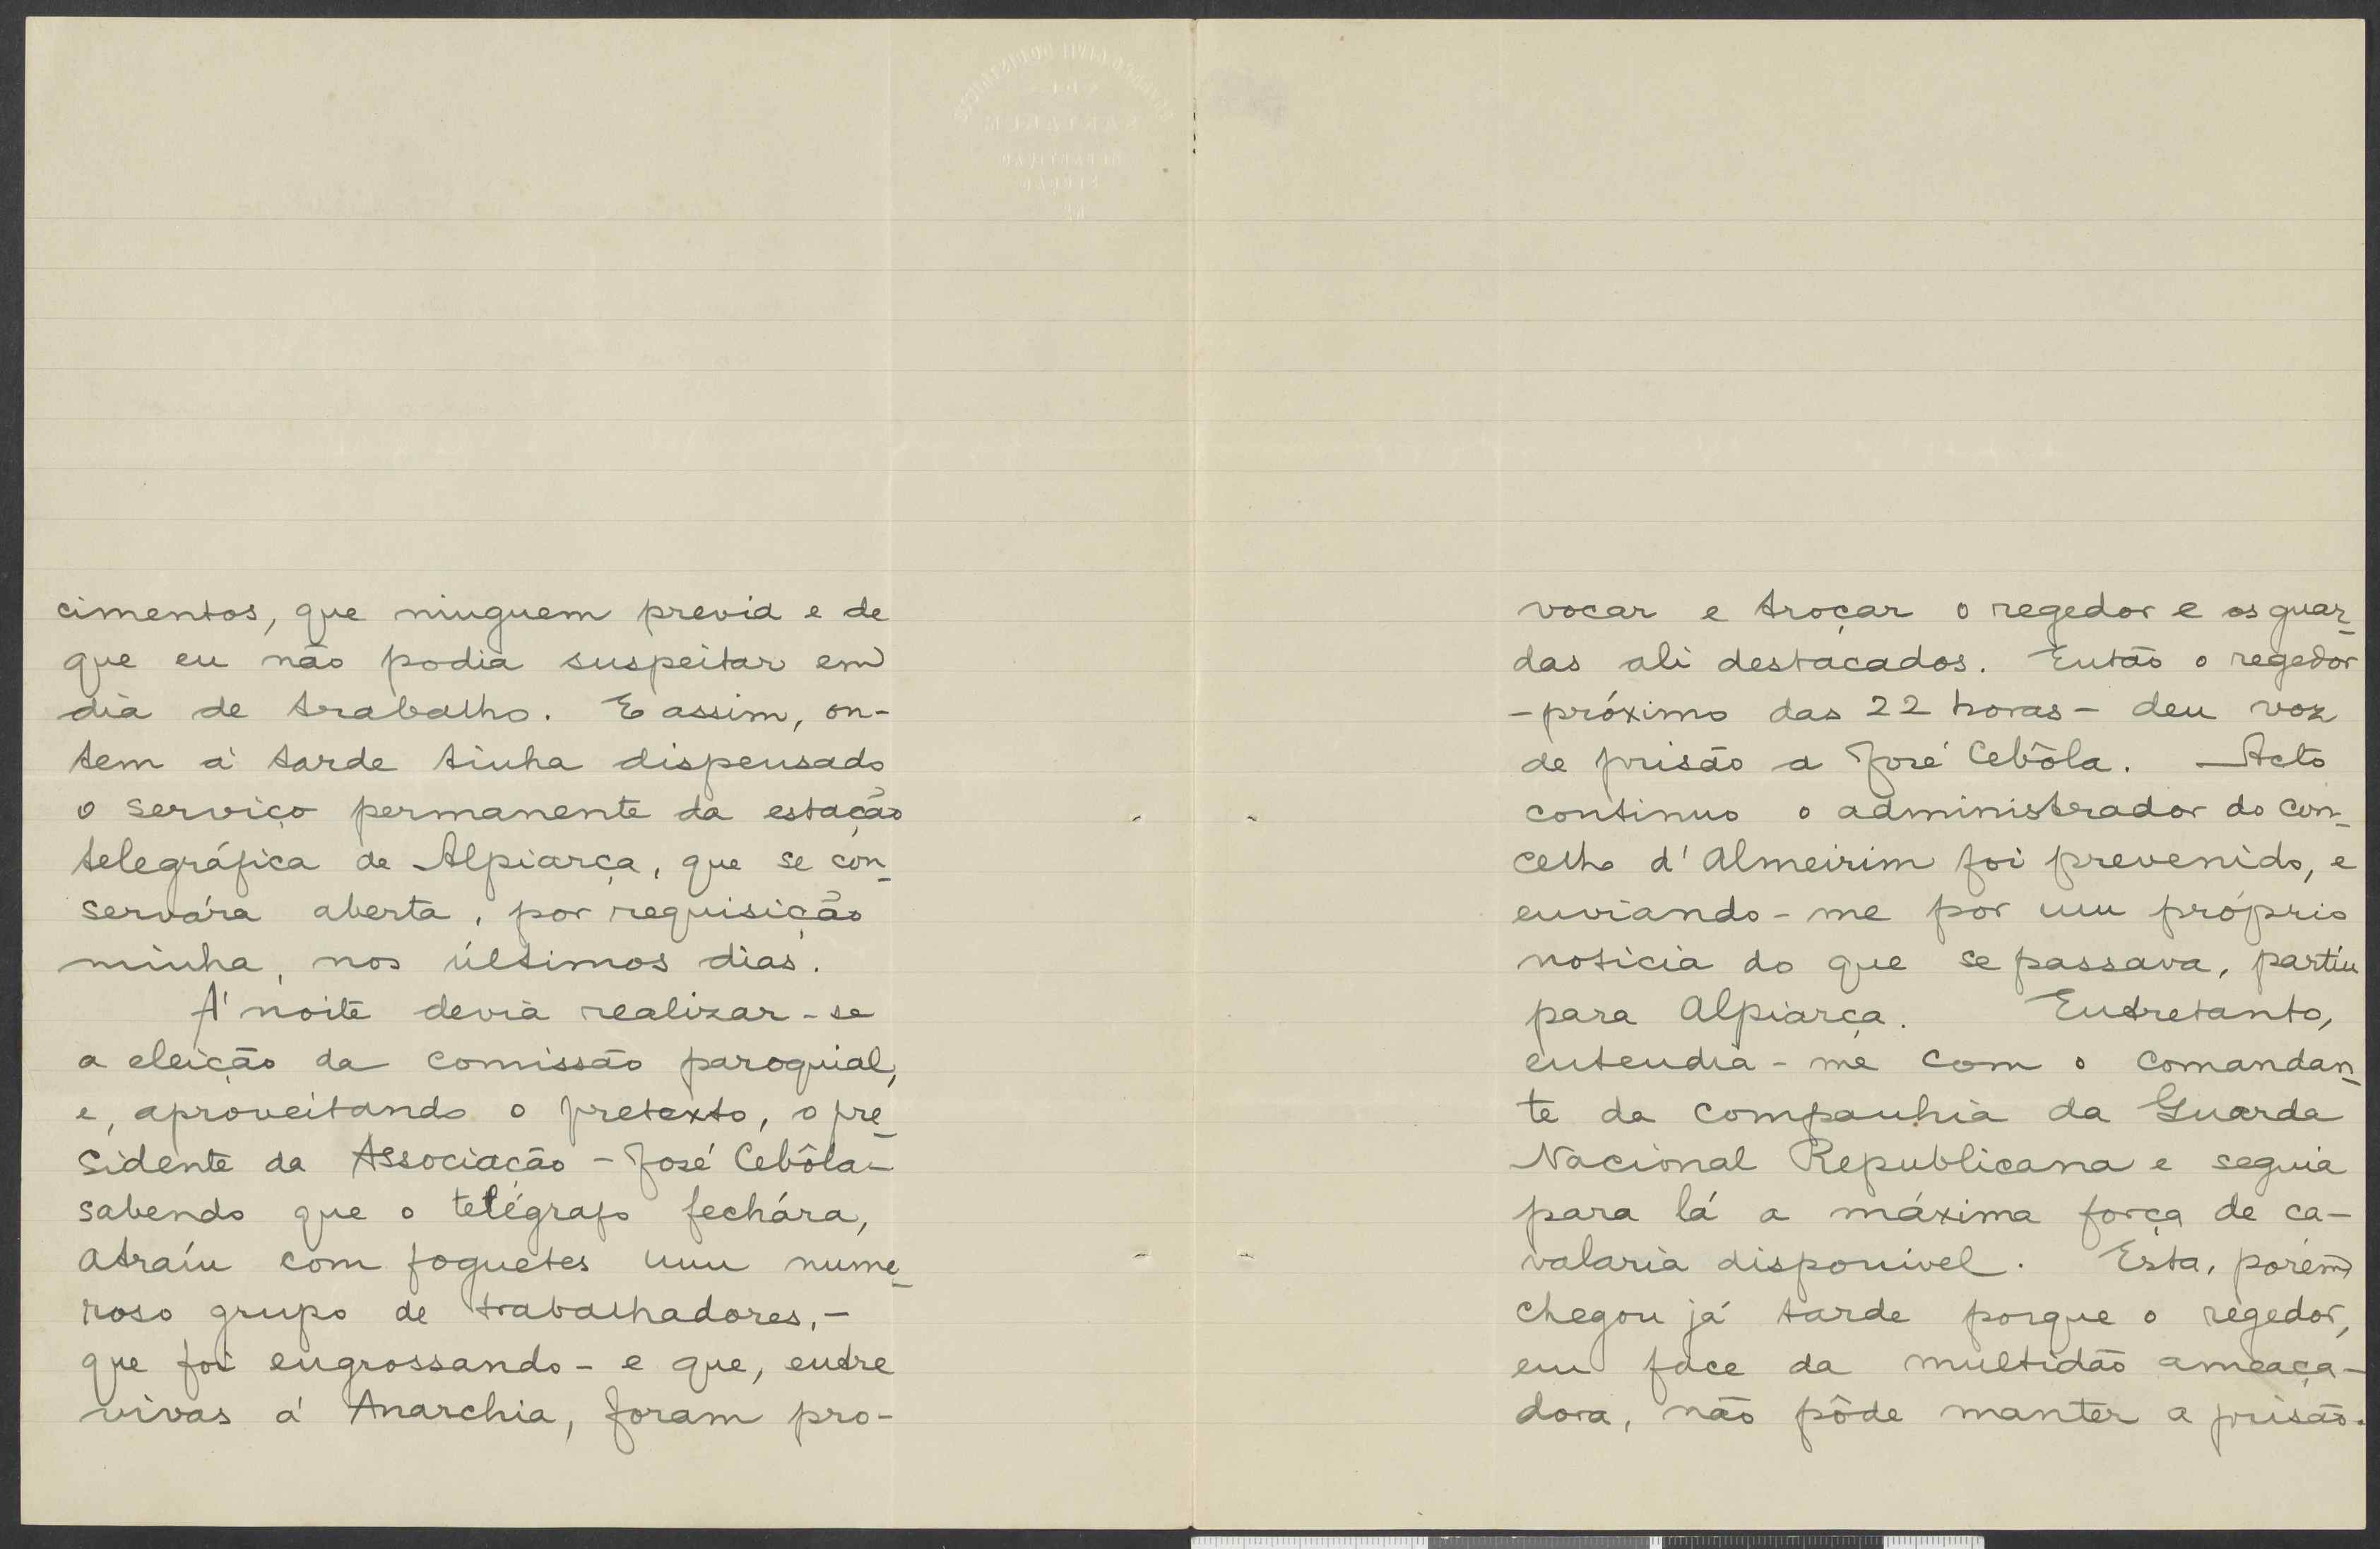 cimentos, que ninguem previa e de
que eu não podia suspeitar em
dia de trabalho. E assim, on-
tem á tarde tinha dispensado
o serviço permanente da estação
telegráfica de Alpiarça, que se con-
servára aberta, por requisição
minha, nos últimos dias.
Á noite devia realizar-se
a eleição da comissão paroquial,
e, aproveitando o pretexto, o pre-
sidente da Associação - José Cebôla -
sabendo que o telégrafo fechára,
atraíu com foguetes um nume-
roso grupo de trabalhadores, -
que foi engrossando - e que, entre
vivas á Anarchia, foram pro-
vocar e troçar o regedor e os guar-
das ali destacados. Então o regedor
- próximo das 22 horas - deu voz
de prisão a José Cebôla. Acto
continuo o administrador do con-
celho d'Almeirim foi prevenido, e
enviando-me por um próprio
noticia do que se passava, partiu
para Alpiarça. Entretanto,
entendia-me com o comandan-
te da companhia da Guarda
Nacional Republicana e seguia
para lá a máxima força de ca-
valaria disponivel. Esta, porém
chegou já tarde porque o regedor,
em face da multidão ameaça-
dora, não pôde manter a prisão.